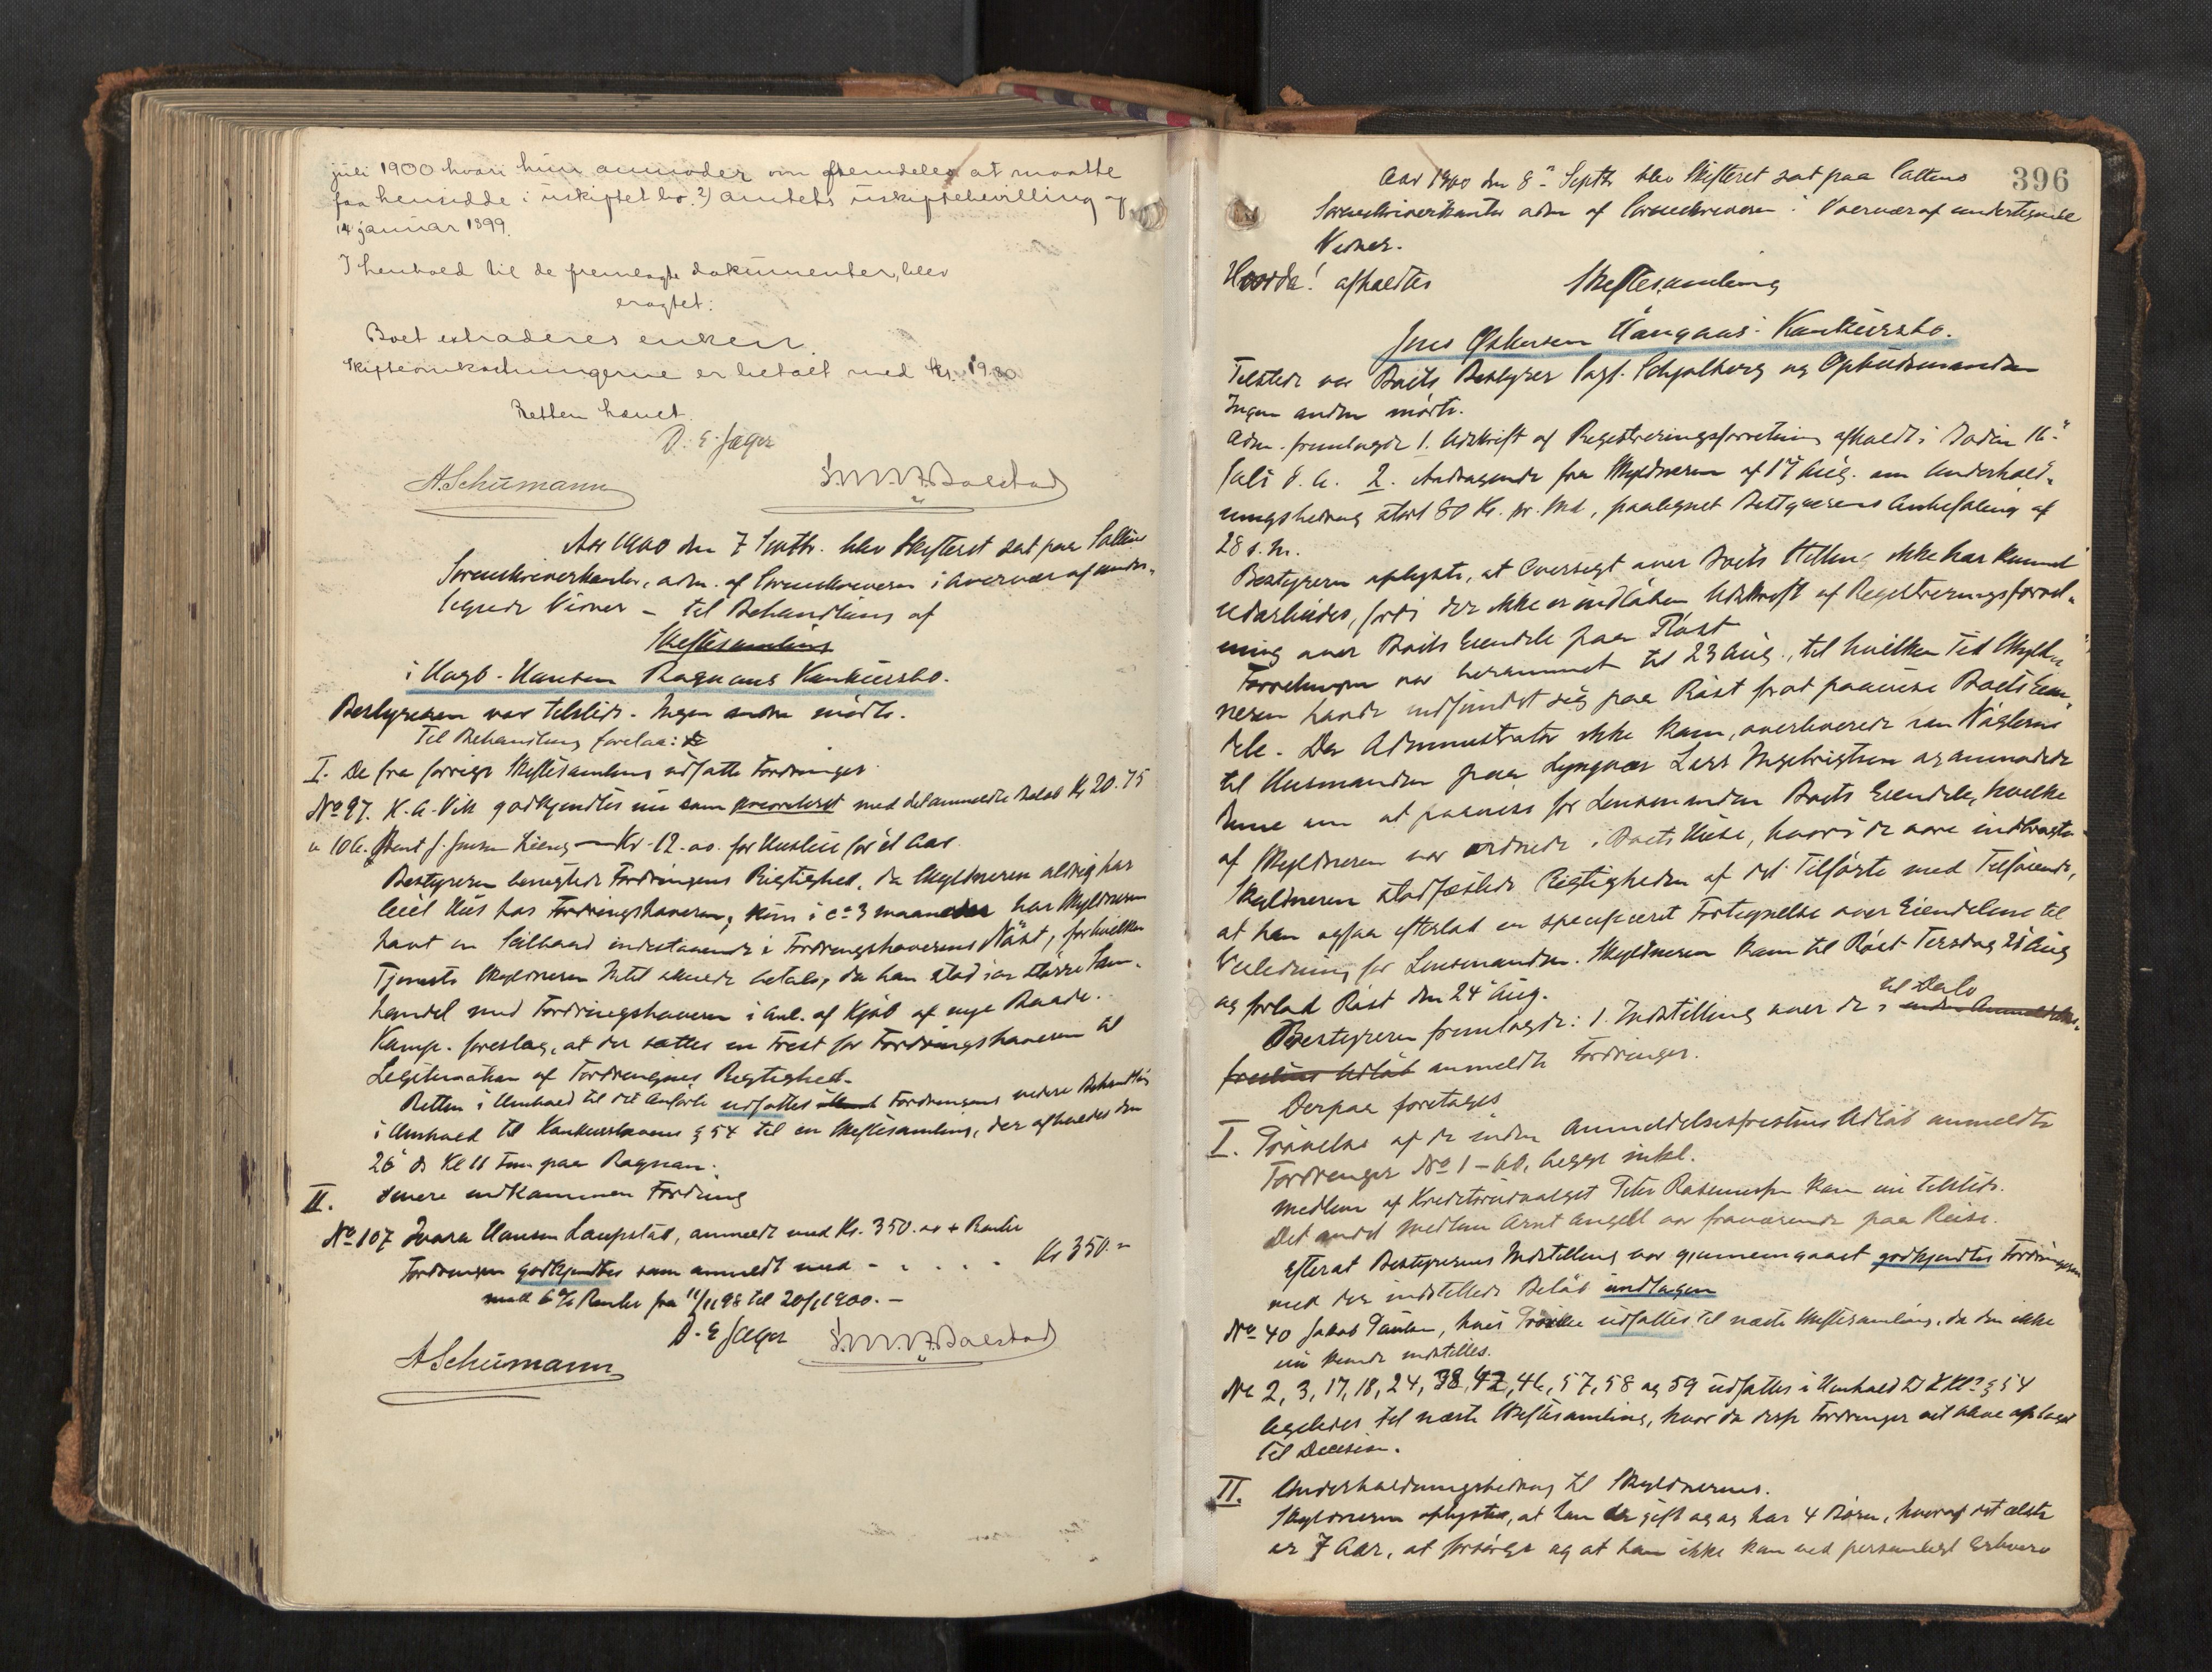 juli 1900 hvori hun anmoder om fremdeles at maatte
faa hensidde i uskiftet bo. 2) amtets uskiftebevilling af
14 januar 1899.
I henhold til de fremlagte dokumenter, blev
eragtet:
Boet extraderes enken.
Skifteomkostningerne er betalt med Kr. 19.30
Retten hævet.
D. E. Jæger
A. Schumann
Aar 1900 den 7 Septbr. blev Skifteret sat paa Saltens
Sorenskriverkontor, adm. af Sorenskriveren i Overvær af under-
tegnede Vidner - til Behandling af
Skiftesamling
i Hagb. Hansen Rognans Konkursbo.
Bestyreren var tilstede. Ingen andre mødte.
Til Behandling forelaa:
I. De fra forrige Skiftesamling udsatte Fordringer
No 97. K. A. Vik godkjendtes nu som prioriteret med det anmeldte Beløb Kr 20.75
" 106. Bernt J. Jensen Kr. 12.00 for Husleie for et Aar.
Bestyreren benegtede Fordringens Rigtighed, da Skyldneren aldrig har
leiet Hus hos Fordringshaveren, kun i ca 3 maaneder har Skyldneren
havt en Seilbaad indestaaende i Fordringshaverens Nøst, for hvilken
Tjeneste Skyldneren Intet skulde betale, da han stod i en større
handel med Fordringshaveren i Anl. af Kjøb af nye Baade.
Komp. foreslog, at der sattes en Frist for Fordringshaveren til
Legitimation af Fordringens Rigtighed.
Retten i Henhold til det Anførte udsattes Fordringens videre Behandling
i Henhold til Konkurslovens § 54 til en Skiftesamling, der afholdes den
26 ds Kl 11 Fm. paa Rognan.
II. Senere indkommen Fordring
No 107 Hansen Laupstad, anmeldt med Kr. 350.00 + Renter
Fordringen godkjendtes som anmeldt med - - - - Kr 350. -
med 6 % Renter fra 11/11 98 til 20/1 1900. -
D. E. Jæger
A. Schumann
396
Aar 1900 den 8de Septbr blev Skifteret sat paa Saltens
Sorenskriverkontor adm af Sorenskriveren i Overvær af undertegnede
Vidner.
Hvorda! afholdtes Skiftesamling
Jens Konkursbo.
Tilstede var Boets Bestyrer Sagf. Schjølberg og Opbudsmanden
Ingen andre mødte.
Adm. fremlagde 1. Udskrift af Registreringsforretning afholdt i Bodin 16de
Juli d. A. 2. Andragende fra Skyldneren af 17 Aug. om Underhold-
ningsbidrag stort 80 Kr. pr. Md, paategnet Bestyrerens Anbefaling af
28 s. M.
Bestyreren oplyste, at Oversigt over Boets Stilling ikke har kunnet
udarbeides, fordi der ikke er indløben Udskrift af Registreringsforret-
ning over Boets Eiendele paa Røst
Forretningen var berammet til 23 Aug., til hvilken Tid Skyld-
neren havde indfundet sig paa Røst for at paavise Boets Eien-
dele. Da Administrator ikke kom, overleverede han Nøglerne
til Husmanden paa Lyngvær Lars Ingebrigtsen og anmodede
denne om at paavise for Lensmanden Boets Eiendele, hvilke
af Skyldneren var ordnede i Boets Huse, hvori de vare indbragte
Skyldneren stadfæstede Rigtigheden af det Tilførte med Tilføiende,
at han ogsaa efterlod en specificeret Fortegnelse over Eiendelene til
Veiledning for Lensmanden. Skyldneren kom til Røst Tirsdag 21 Aug
og forlod Røst den 24 Aug.
Bestyreren fremlagde: 1. Indstilling over de i til Dato
fristens Udløb anmeldte Fordringer.
Derpaa foretages
I. Prøvelse af de inden Anmeldelsesfristens Udløb anmeldte
Fordringer No 1 - 60, begge inkl.
Medlem af Kreditorudvalget Peter Rasmussen kom nu tilstede.
Det andet Medlem Arnt Angell var fraværende paa Reise.
Efterat Bestyrerens Indstilling var gjennemgaaet godkjendtes Fordringerne
med de indstillede Beløb undtagen
No 40 Jakob Paulsen, hvis Prøvelse udsattes til næste Skiftesamling, da den ikke
nu kunde indstilles.
No 2, 3, 17, 18, 24, 38, 42, 46, 57, 58 og 59 udsattes i Henhold til Kkl. § 54
ligeledes til næste Skiftesamling, hvor da disse Fordringer vil blive optaget
til Decision.
II. Underholdningsbidrag til Skyldneren.
Skyldneren oplyste, at han er gift og har 4 Børn, hvoraf det ældste
er 7 Aar, at forsørge og at han ikke kan ved personligt Erhverv